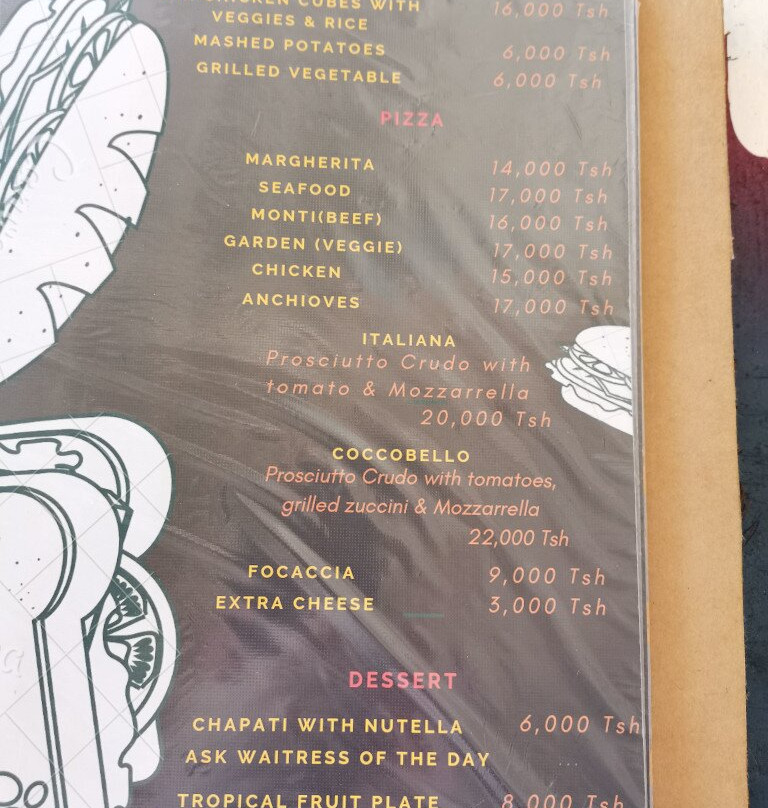 CHICKEN CUBES WITH 16,000 Tsh
VEGGIES & RICE
MASHED POTATOES 6,000 Tsh
GRILLED VEGETABLE 6,000 Tsh
PIZZA
MARGHERITA 14,000 Tsh
SEAFOOD 17,000 Tsh
MONTI(BEEF) 16,000 Tsh
GARDEN (VEGGIE) 17,000 Tsh
CHICKEN 15,000 Tsh
ANCHIOVES 17,000 Tsh
ITALIANA
Prosciutto Crudo with
tomato & Mozzarrella
20,000 Tsh
COCCOBELLO
Prosciutto Crudo with tomatoes,
grilled zuccini & Mozzarrella
22,000 Tsh
FOCACCIA 9,000 Tsh
EXTRA CHEESE 3,000 Tsh
DESSERT
CHAPATI WITH NUTELLA 6,000 Tsh
ASK WAITRESS OF THE DAY ...
TROPICAL FRUIT PLATE 8,000 Tsh